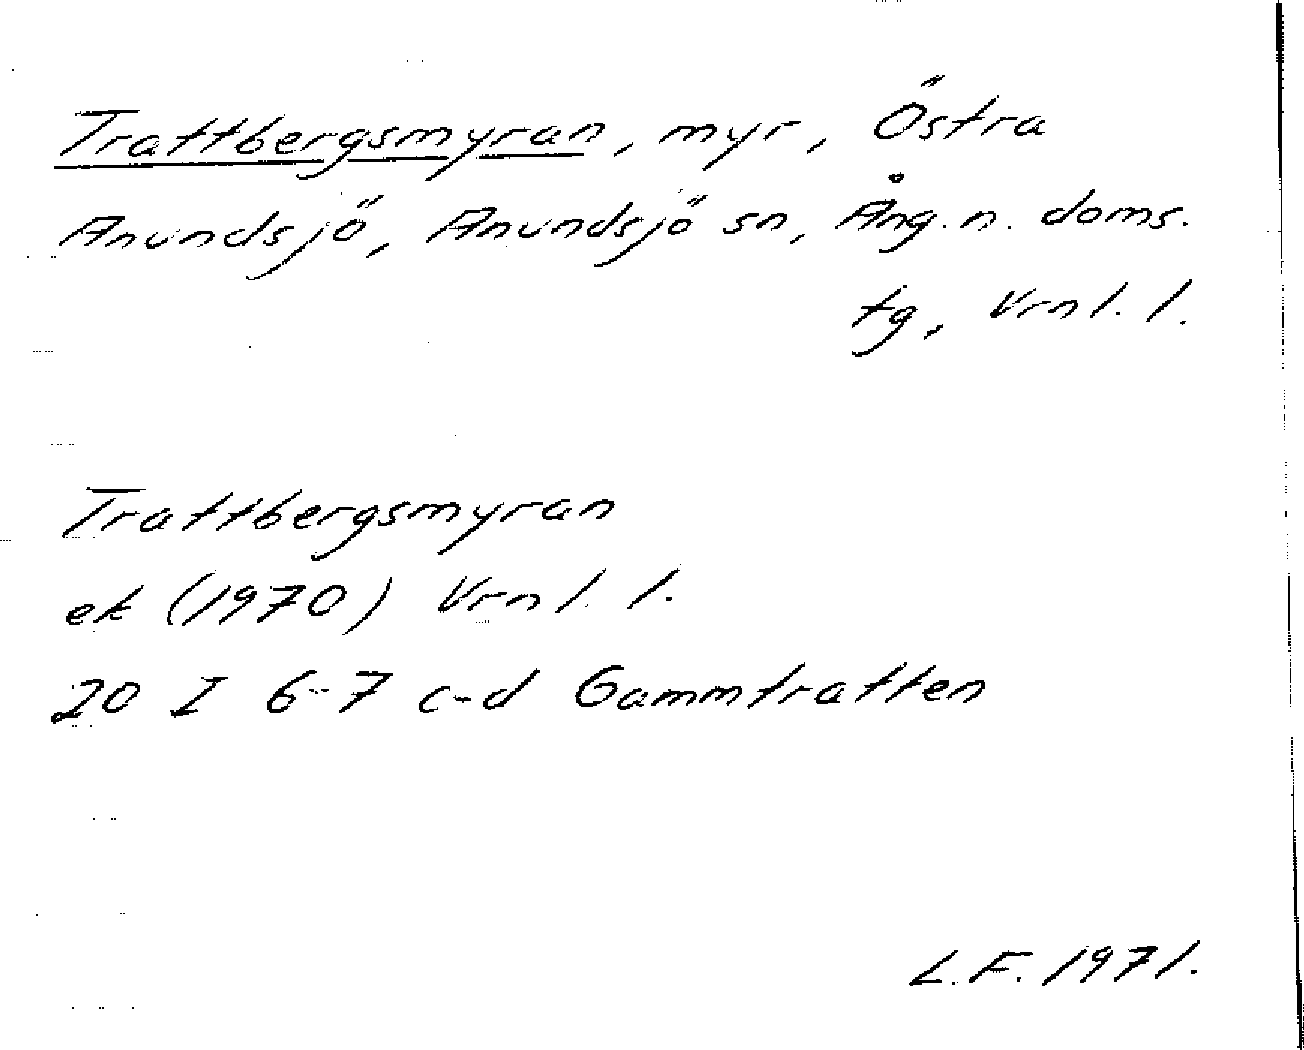 Trattbergsmyran, myr, Östra
Anundsjö, Anundsjö sn, Ång. n. doms.
tg, Vrnl. l.
Trattbergsmyran
ek (1970) Vrnl. l.
20 I 6-7 c-d Gammtratten
L.F. 1971.